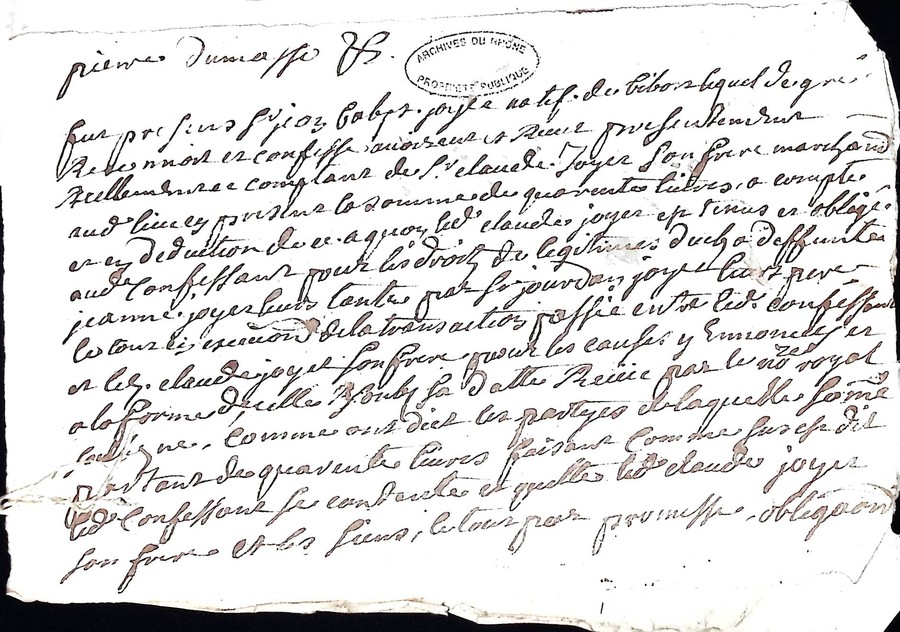 pierre Dumasse &.
ARCHIVES DU RHÔNE
PROPRIÉTÉ PUBLIQUE
fut presens Sr jean babpt. joyer natif de bibost lequel de gré
Reconnoit et confesse avoir eut et Receu presentement
Reellement et comptant de Sr claude Joyer son frere marchand
aud. lieu cy present la somme de quarente livres, a compte
et en deduction de ce aquoy led. claude joyer est tenus et obligé
aud. confessant pour les droitz de legitimes ducha deffunte
jeanne joyer leurs tante par Sr jourdan joyer leurs pere
le tout en execuon de la transaction passée entre led. confessant
et led. claude joyer son frere pour les causes y Ennoncées et
a la forme d'icelle Soub sa datte Receue par le nore royal
comme ont dict les partyes de laquelle somme
partant de quarente livres faisant comme sus est dit
led. confessant se contente et quitte led. claude joyer
son frere et les siens, le tout par promesse, obligaon